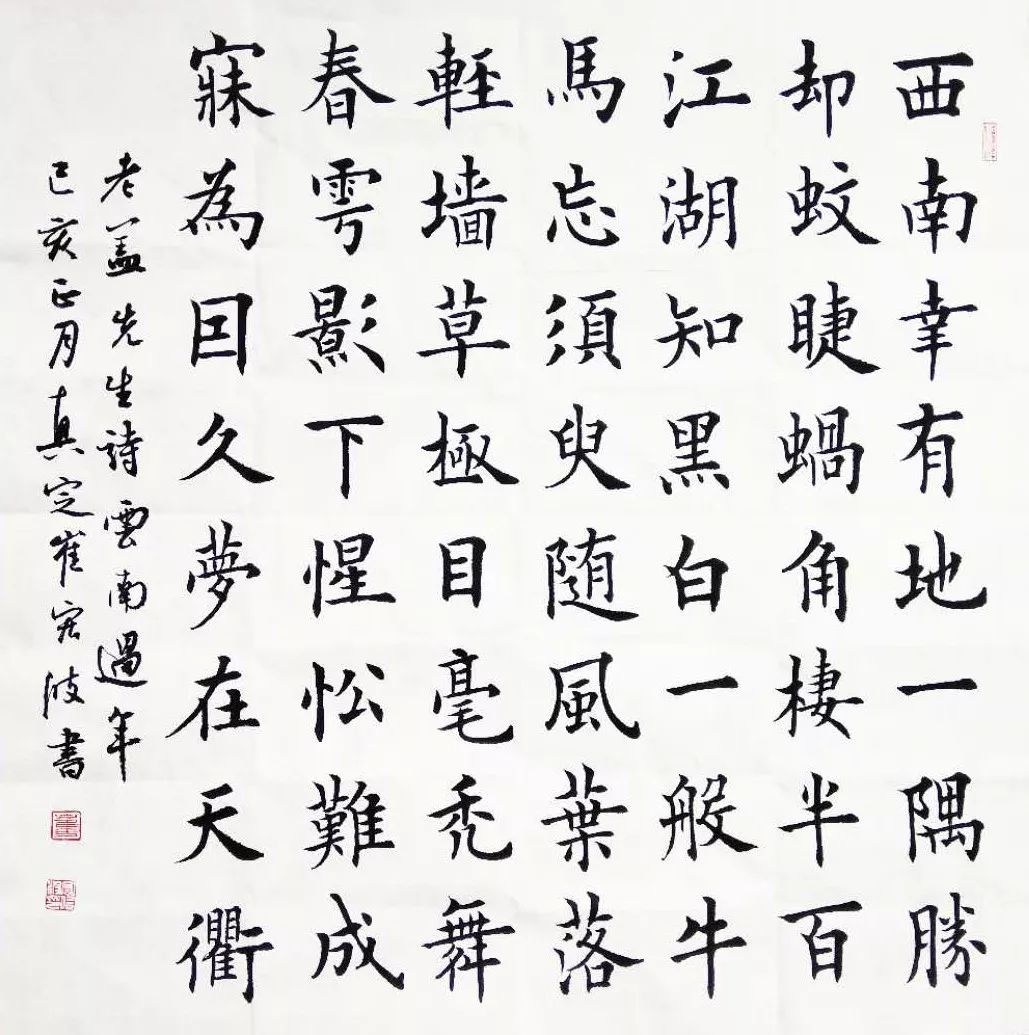 西南幸有地一隅勝
却蚊睫蝸角棲半百
江湖知黑白一般牛
馬忘須臾随風葉落
軽墙草極目毫秃舞
春雩影下惺忪難成
寐為囙久夢在天衢
老盖先生詩雲南過年
己亥正月真定崔宏波書